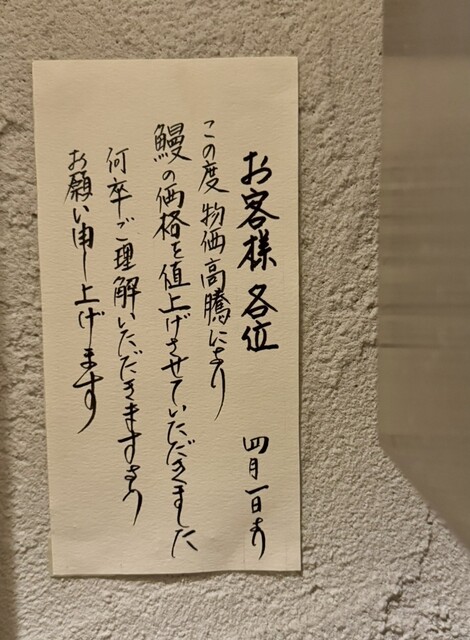 お客様 各位 四月一日より
この度 物価高騰により
鰻の価格を値上げさせていただきました
何卒ご理解いただきますよう
お願い申し上げます